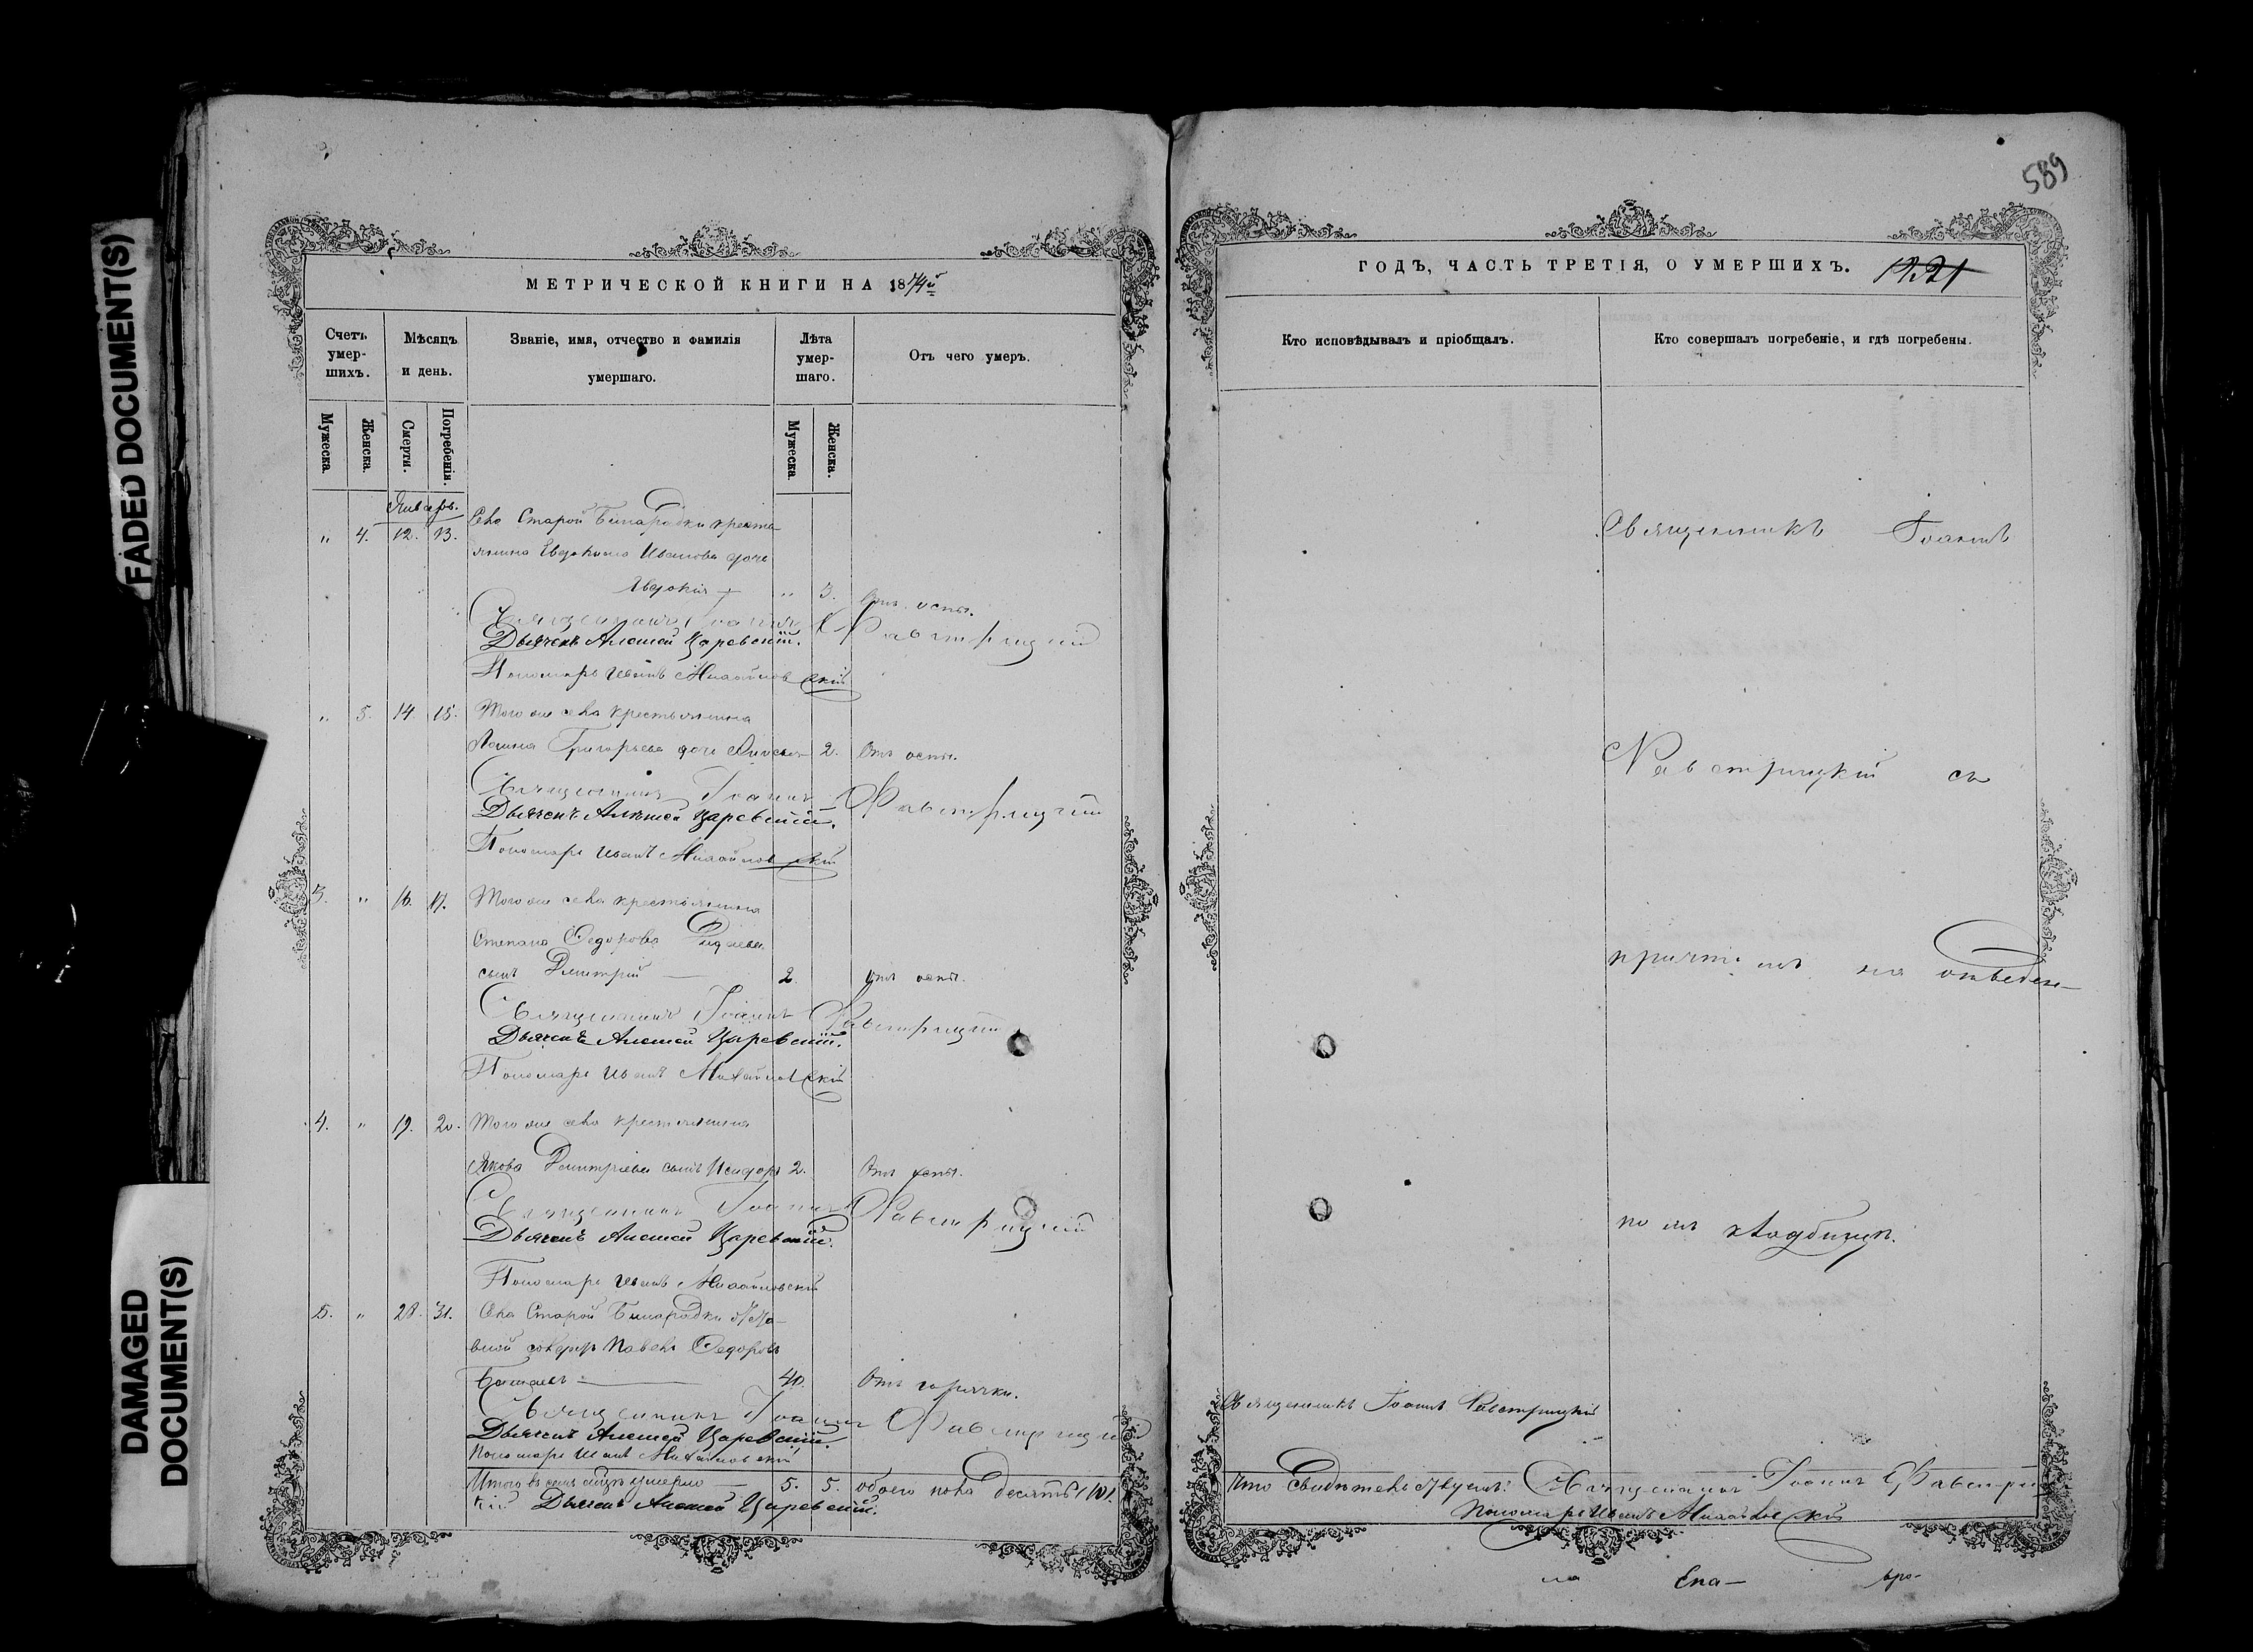 FADED DOCUMENT(S)
DAMAGED
DOCUMENT(S)
МЕТРИЧЕСКОЙ КНИГИ НА 1874й
Счетъ
умер-
шихъ.
Мѣсяцъ
и день.
Званіе, имя, отчество и фамилія
умершаго.
Лѣта
умер-
шаго.
Отъ чего умеръ.
Мужеска.
Женска.
Смерти.
Погребенія.
Мужеска.
Женска.
Январь.
" 4. 12. 13. Села Старой Бинарадки кресть-
янина Евдокима Иванова дочь
Евдокія " 3. Отъ оспы.
Священникъ Іоаннъ Фавстрицкій
Дьячекъ Алексей Царевскій.
Пономарь Иванъ Михайловскій
" 5. 14. 15. Того же села крестьянина
Григорьева дочь 2. Отъ оспы.
Священникъ Іоаннъ Фавстрицкій
Дьячекъ Алексей Царевскій.
Пономарь Иванъ Михайловскій
3. " 16. 17. Того же села крестьянина
Степана Федорова
сынъ Дмитрій 2. Отъ оспы.
Священникъ Іоаннъ Фавстрицкій
Дьячекъ Алексей Царевскій.
Пономарь Иванъ Михайловскій
4. " 19. 20. Того же села крестьянина
Якова Дмитріева сынъ Исидоръ 2. Отъ оспы.
Священникъ Іоаннъ Фавстрицкій
Дьячекъ Алексей Царевскій.
Пономарь Иванъ Михайловскій
5. " 28. 31. Села Старой Бинарадки
Павелъ Федоровъ
40. Отъ горячки.
Священникъ Іоаннъ Фавстрицкій
Дьячекъ Алексей Царевскій.
Пономарь Иванъ Михайловскій
Итого въ семъ умерло 5. 5. обоего пола десять (10).
кій Дьячекъ Алексей Царевскій.
589
ГОДЪ, ЧАСТЬ ТРЕТІЯ, О УМЕРШИХЪ. 1221
Кто исповѣдывалъ и пріобщалъ.
Кто совершалъ погребеніе, и гдѣ погребены.
Священникъ Іоаннъ
Фавстрицкій съ
причтомъ на отведен-
номъ кладбищѣ.
Священникъ Іоаннъ Фавстрицкій
Что свидѣтельствуемъ: Священникъ Іоаннъ Фавстриц-
Пономарь Иванъ Михайловскій
на Епа-